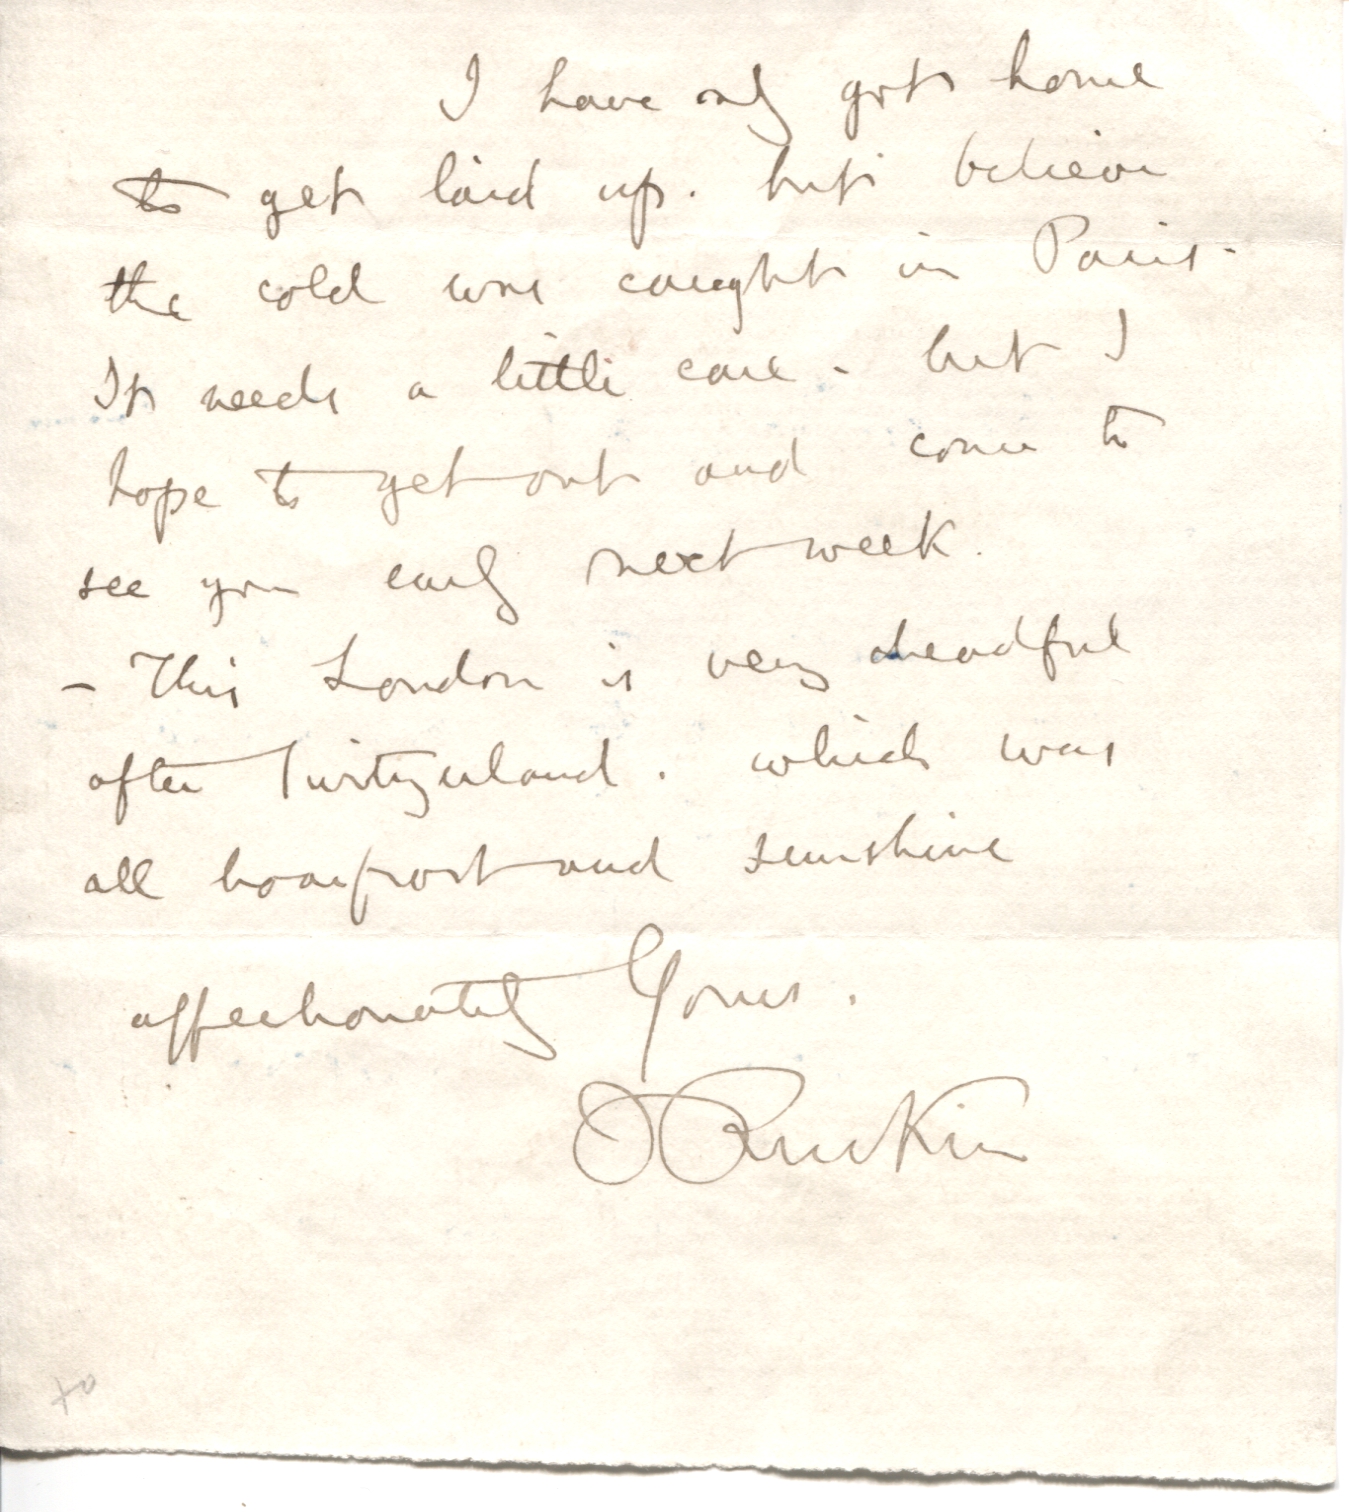 I have only got home
to get laid up. but believe
the cold was caught in Paris.
It needs a little care - but I
hope to get out and come to
see you early next week.
- This London is very dreadful
after Switzerland. which was
all hoarfrost and sunshine
affectionately Yours.
J Ruskin